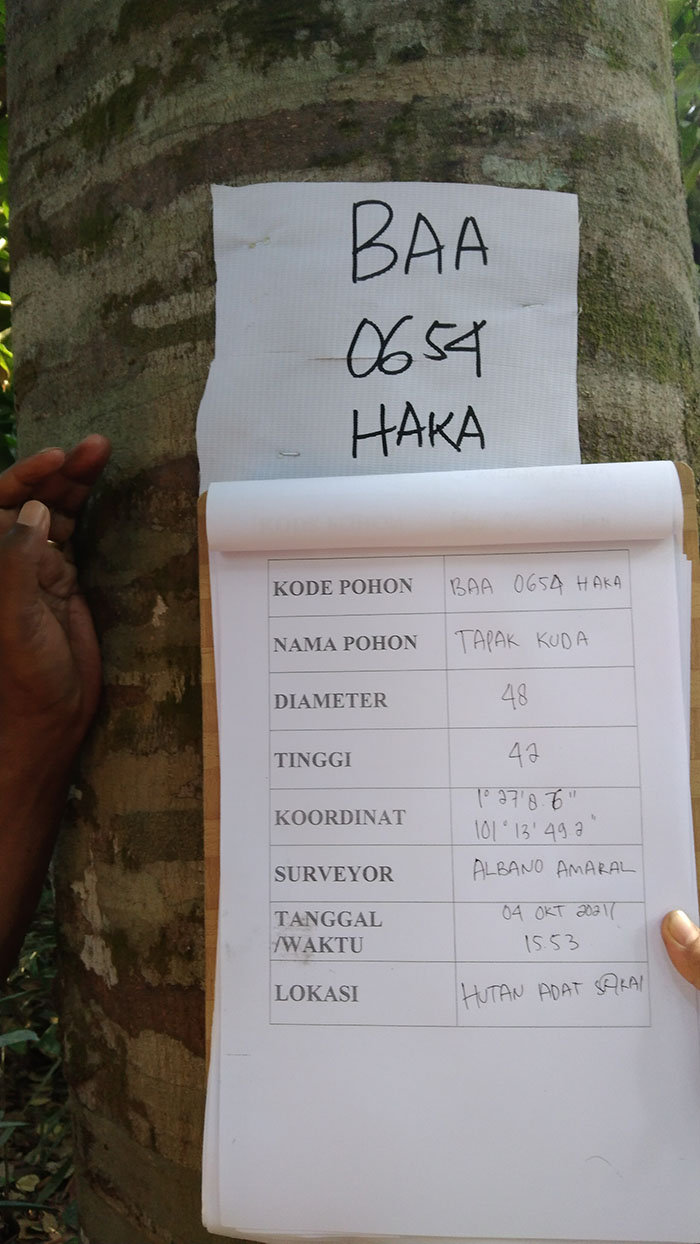 BAA
0654
HAKA
KODE POHON BAA 0654 HAKA
NAMA POHON TAPAK KUDA
DIAMETER 48
TINGGI 42
KOORDINAT 1° 27' 8.76"
101° 13' 49.2"
SURVEYOR ALBANO AMARAL
TANGGAL 04 OKT 2021/
/WAKTU 15.53
LOKASI HUTAN ADAT SAKAI